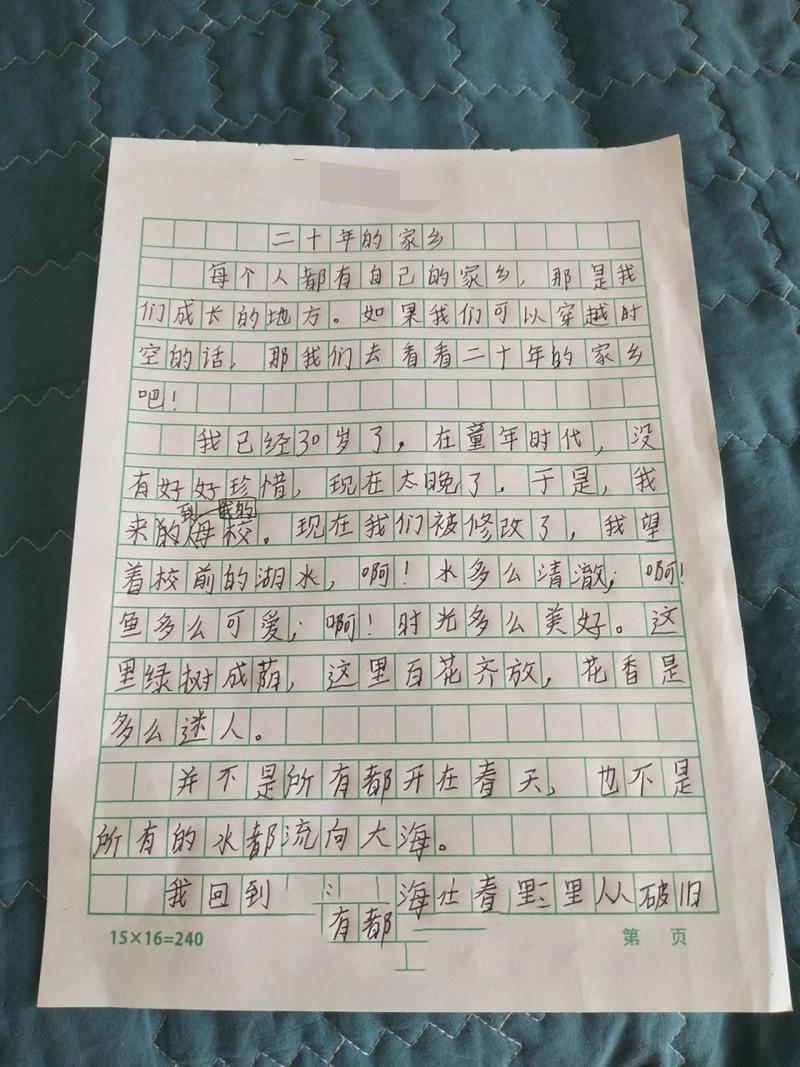 二十年的家乡
每个人都有自己的家乡，那是我
们成长的地方。如果我们可以穿越时
空的话，那我们去看看二十年的家乡
吧！
我已经30岁了，在童年时代，没
有好好珍惜，现在太晚了．于是，我
到我的
来的母校。现在我们被修改了，我望
着校前的湖水，啊！水多么清澈；啊！
鱼多么可爱；啊！时光多么美好。这
里绿树成荫，这里百花齐放，花香是
多么迷人。
并不是所有都开在春天，也不是
所有的水都流向大海。
我回到
海仕春里三里从破旧
有都
15×16=240
第 页